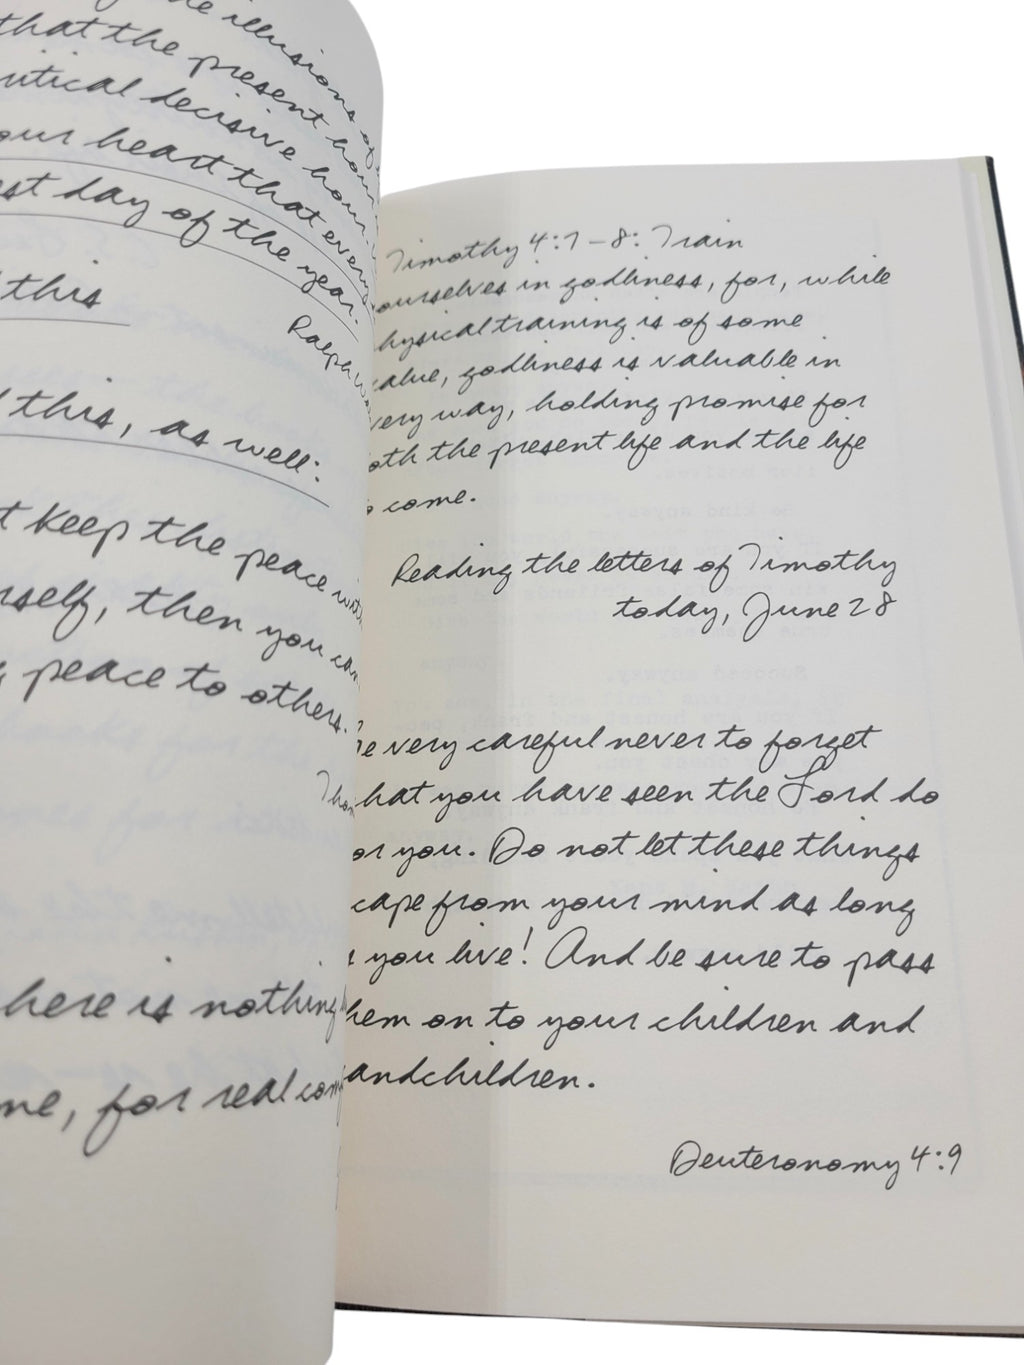 the illusions of
that the present hour
critical decisive hour.
your heart that every
best day of the year.
Ralph
this
this, as well:
keep the peace with
yourself, then you can
peace to others.
here is nothing
me, for real
Timothy 4:7-8: Train
ourselves in godliness, for, while
physical training is of some
value, godliness is valuable in
every way, holding promise for
both the present life and the life
to come.
Reading the letters of Timothy
today, June 28
Be very careful never to forget
what you have seen the Lord do
for you. Do not let these things
escape from your mind as long
as you live! And be sure to pass
them on to your children and
grandchildren.
Deuteronomy 4:9